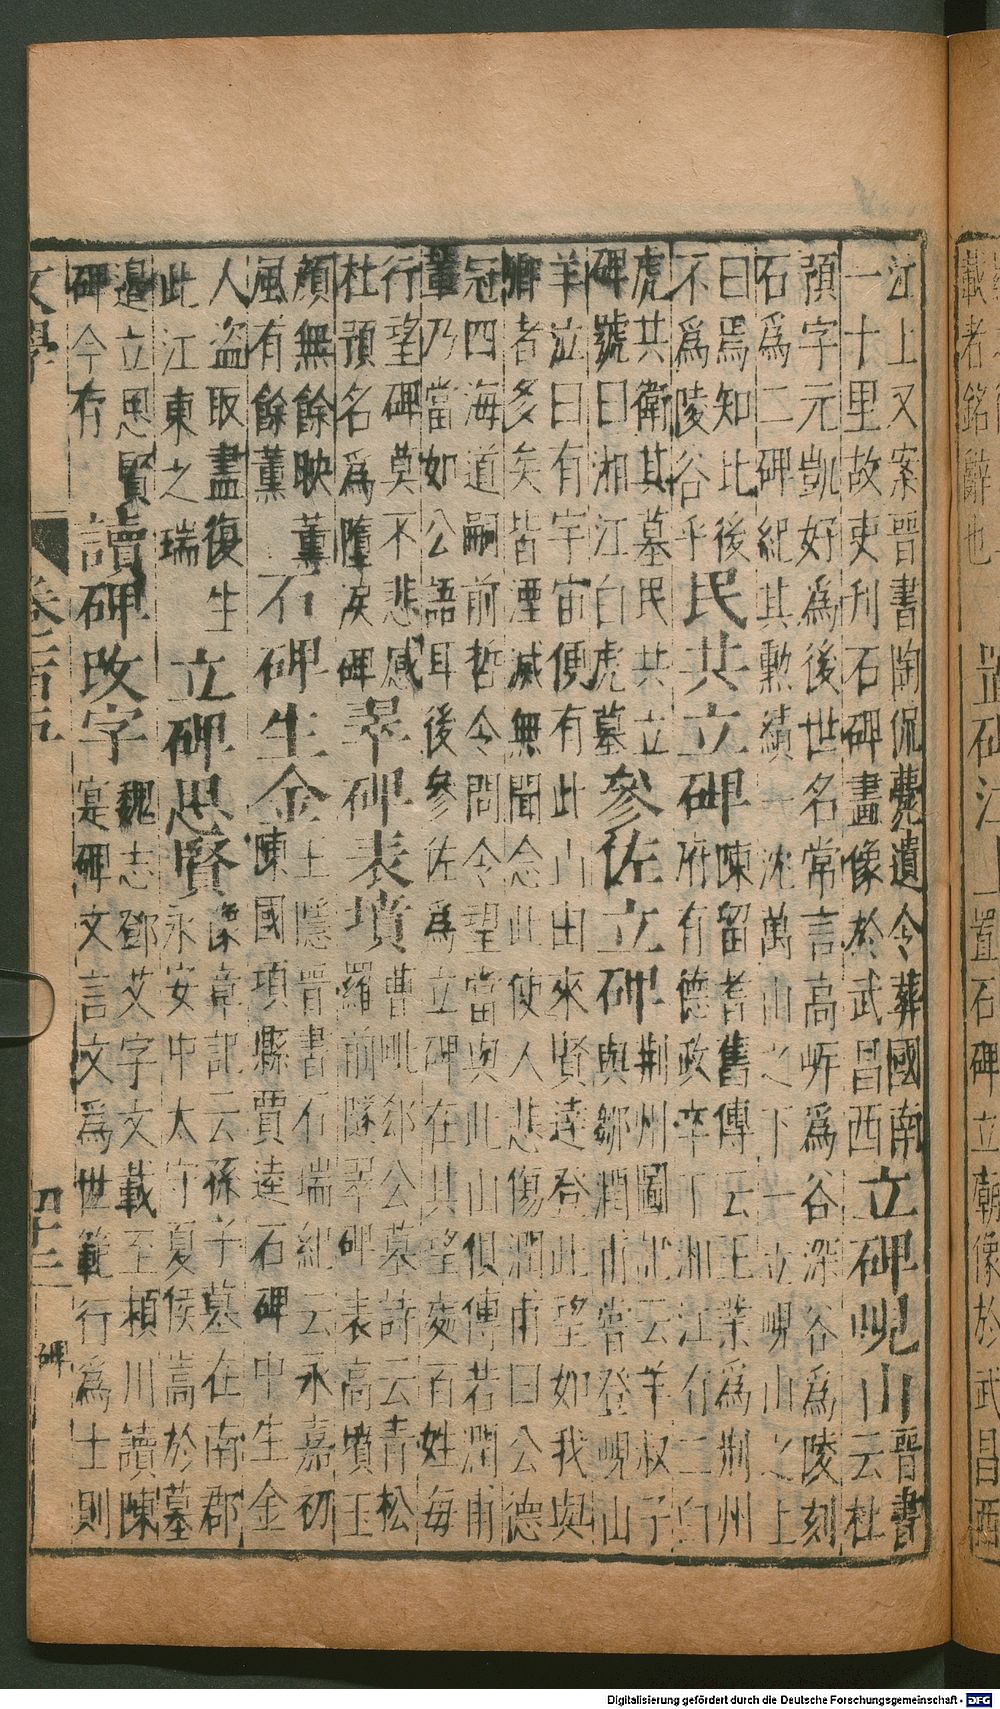 載者銘辭也
置碑江上
置石碑立朝像於武昌西
江上又案晉書陶侃薨遺令葬國南
一十里故吏刊石碑畫像於武昌西
立碑峴山
晉書
云杜
預字元凱好為後世名常言高岓為谷深谷為陵刻
石為二碑紀其勲績一沈萬山之下一立峴山之上
曰焉知比後
不為陵谷乎
民共立碑
陳留耆舊傳云王業為荆州
府有德政卒下洲江有二白
虎共衛其墓民共立
碑號曰湘江白虎墓
參佐立碑
荆州圖記云羊叔子
與鄒潤甫嘗登峴山
羊泣曰有宇宙便有此山由來賢達登此望如我與
卿者多矣皆湮滅無聞念此使人悲傷潤甫曰公德
冠四海道嗣前哲令問令望當與此山俱傳若潤甫
輩乃當如公語耳後參佐為立碑在其望處百姓每
行望碑莫不悲感
杜預名為墮淚碑
翠碑表墳
曹毗郗公墓詩云青松
羅前隧翠碑表高墳玉
顏無餘映蕙
風有餘薰
石碑生金
王隱晉書石瑞紀云永嘉初
陳國項縣賈逵石碑中生金
人盗取盡復生
此江東之瑞
立碑思賢
豫章記云孫子墓在南郡
永安中太守夏侯嵩於墓
邉立思賢
碑今存
讀碑改字
魏志鄧艾字文載至頴川讀陳
寔碑文言文為世範行為士則
文學
卷一百五
四十三
碑
Digitalisierung gefördert durch die Deutsche Forschungsgemeinschaft - DFG